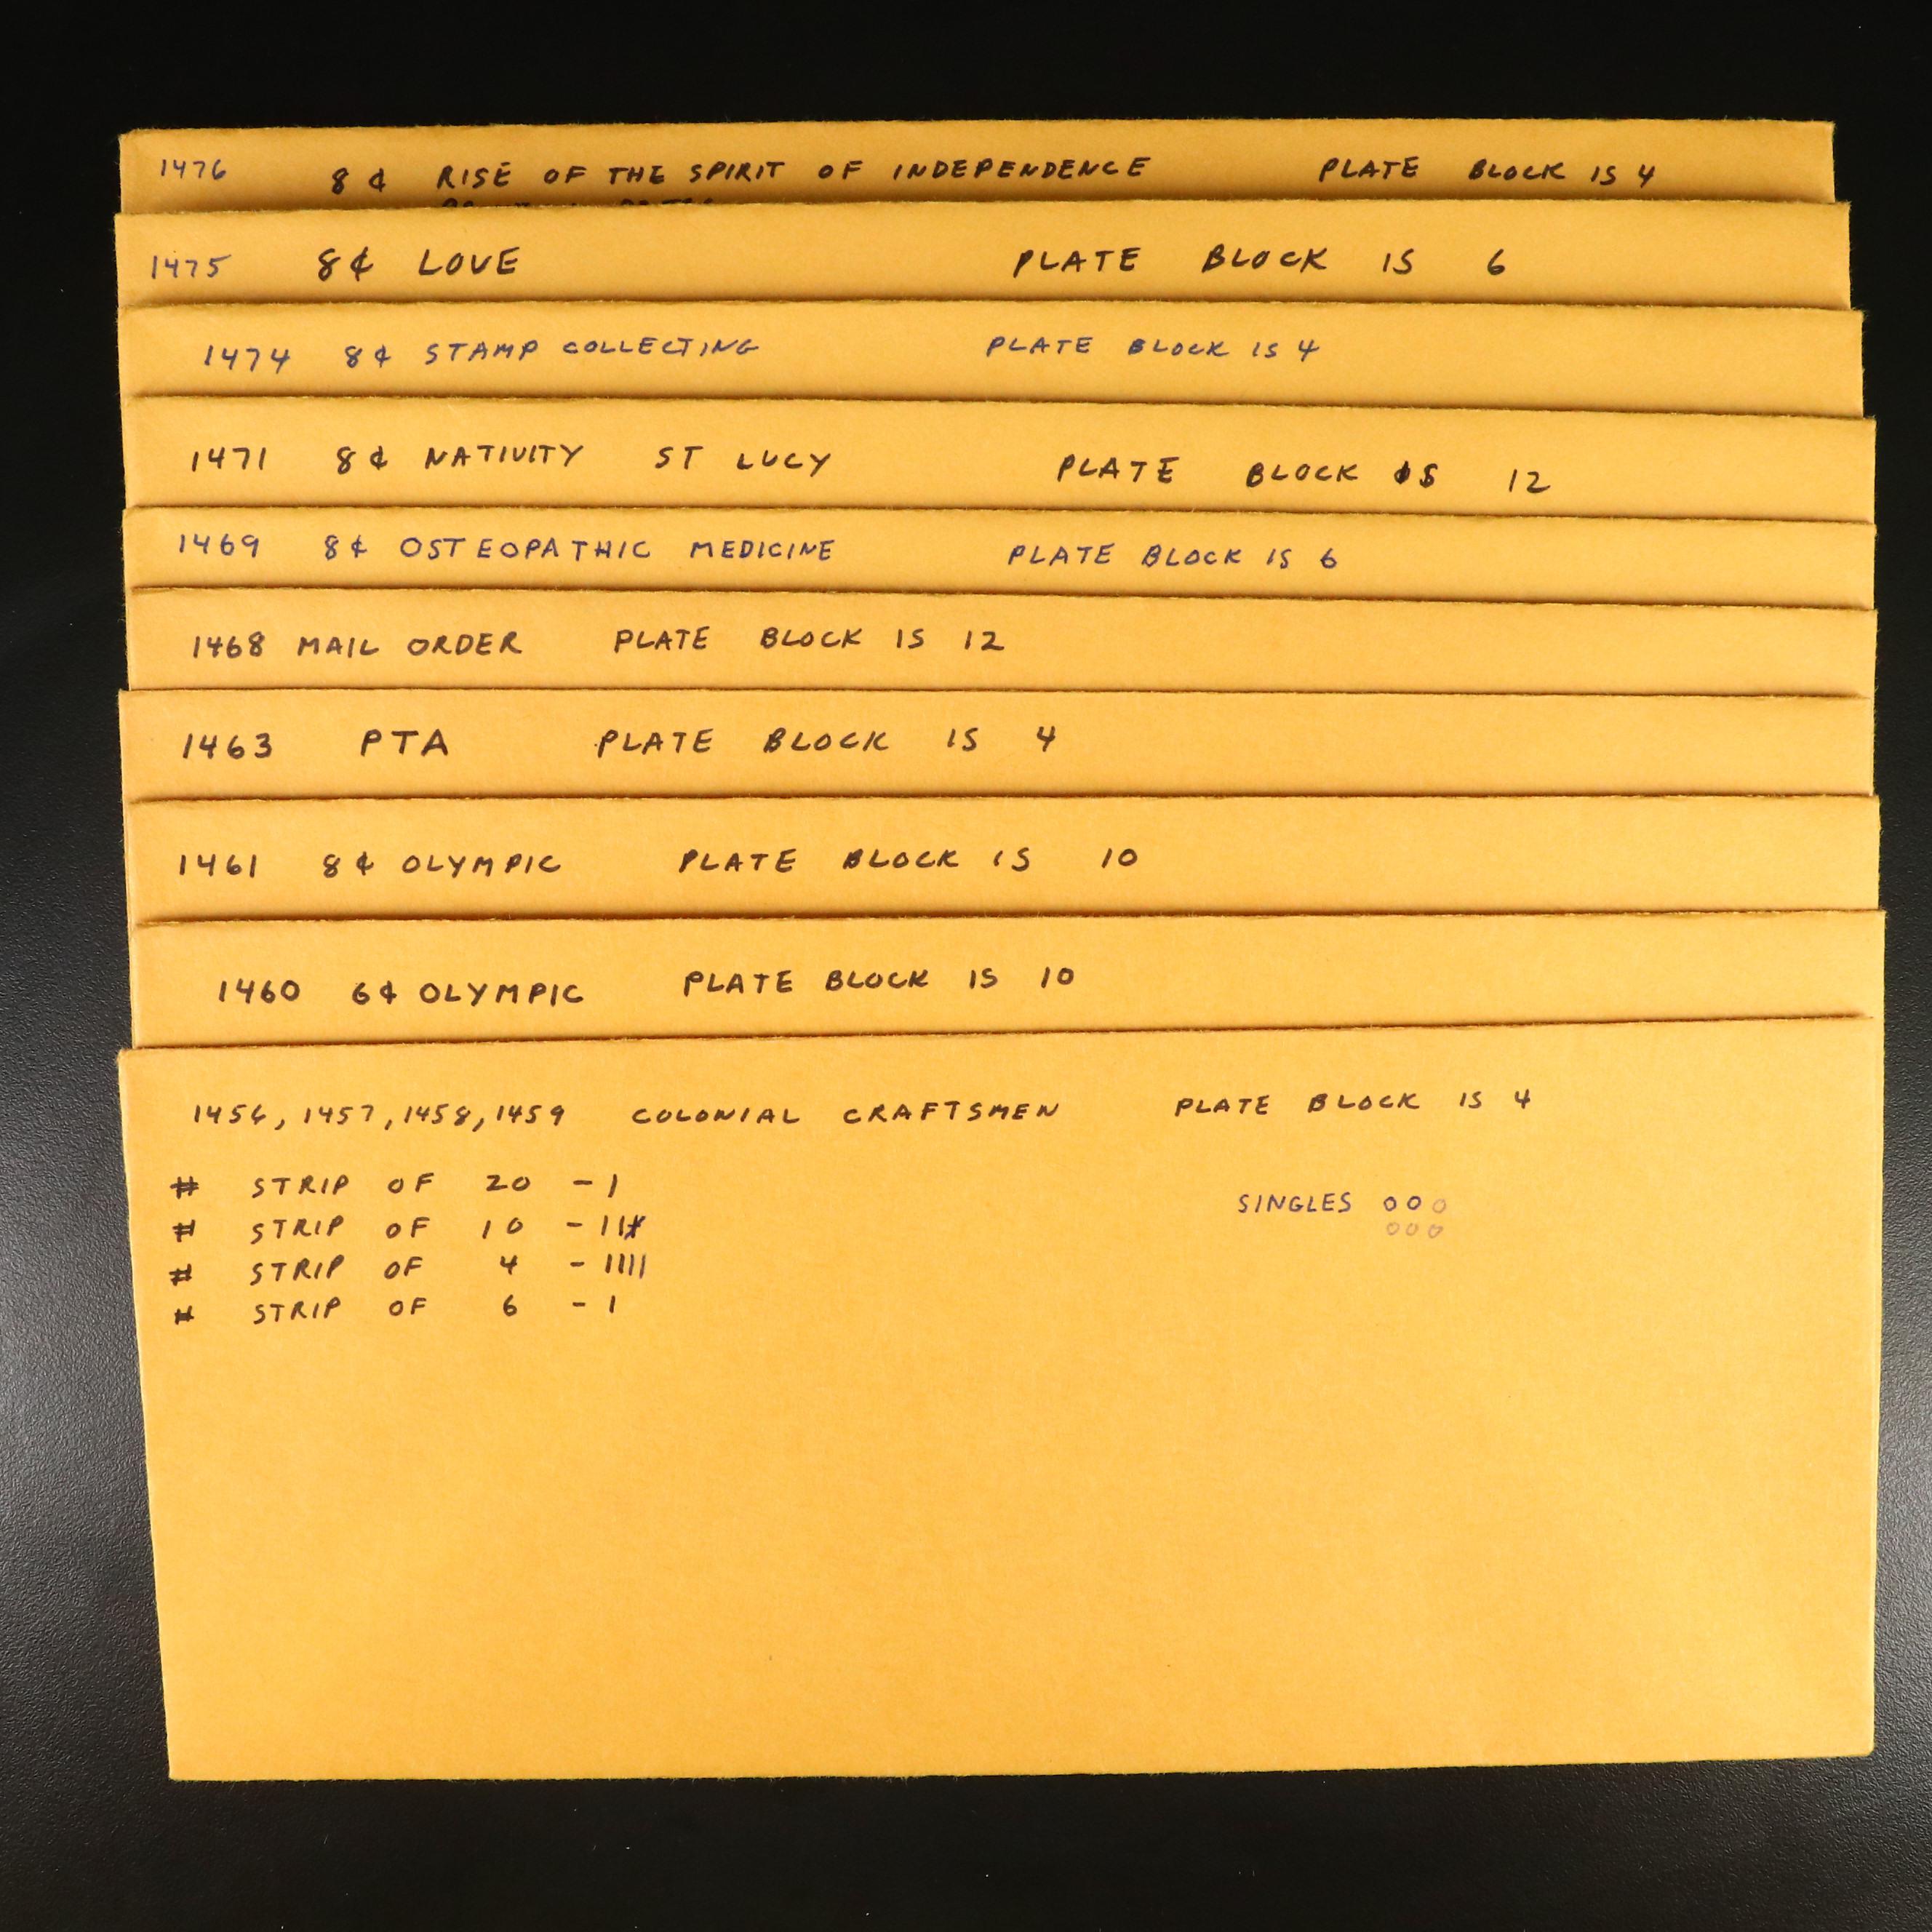 1476 8¢ RISE OF THE SPIRIT OF INDEPENDENCE PLATE BLOCK IS 4
1475 8¢ LOVE PLATE BLOCK IS 6
1474 8¢ STAMP COLLECTING PLATE BLOCK IS 4
1471 8¢ NATIVITY ST LUCY PLATE BLOCK IS 12
1469 8¢ OSTEOPATHIC MEDICINE PLATE BLOCK IS 6
1468 MAIL ORDER PLATE BLOCK IS 12
1463 PTA PLATE BLOCK IS 4
1461 8¢ OLYMPIC PLATE BLOCK IS 10
1460 6¢ OLYMPIC PLATE BLOCK IS 10
1456, 1457, 1458, 1459 COLONIAL CRAFTSMEN PLATE BLOCK IS 4
# STRIP OF 20 - 1
# STRIP OF 10 - 11
# STRIP OF 4 - 1111
# STRIP OF 6 - 1
SINGLES 000
000